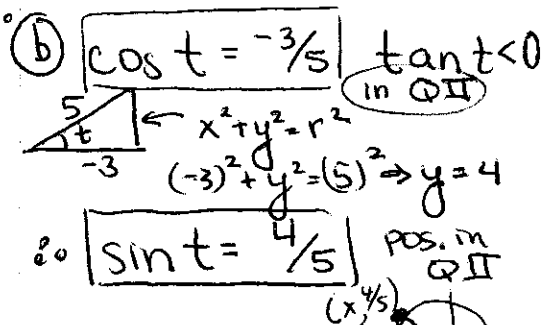 (b) cos t = -3/5 tan t < 0
in QII
5
t
-3
← x² + y² = r²
(-3)² + y² = (5)² ⇒ y = 4
∴ sin t = 4/5 pos. in
QII
(x, 4/5)